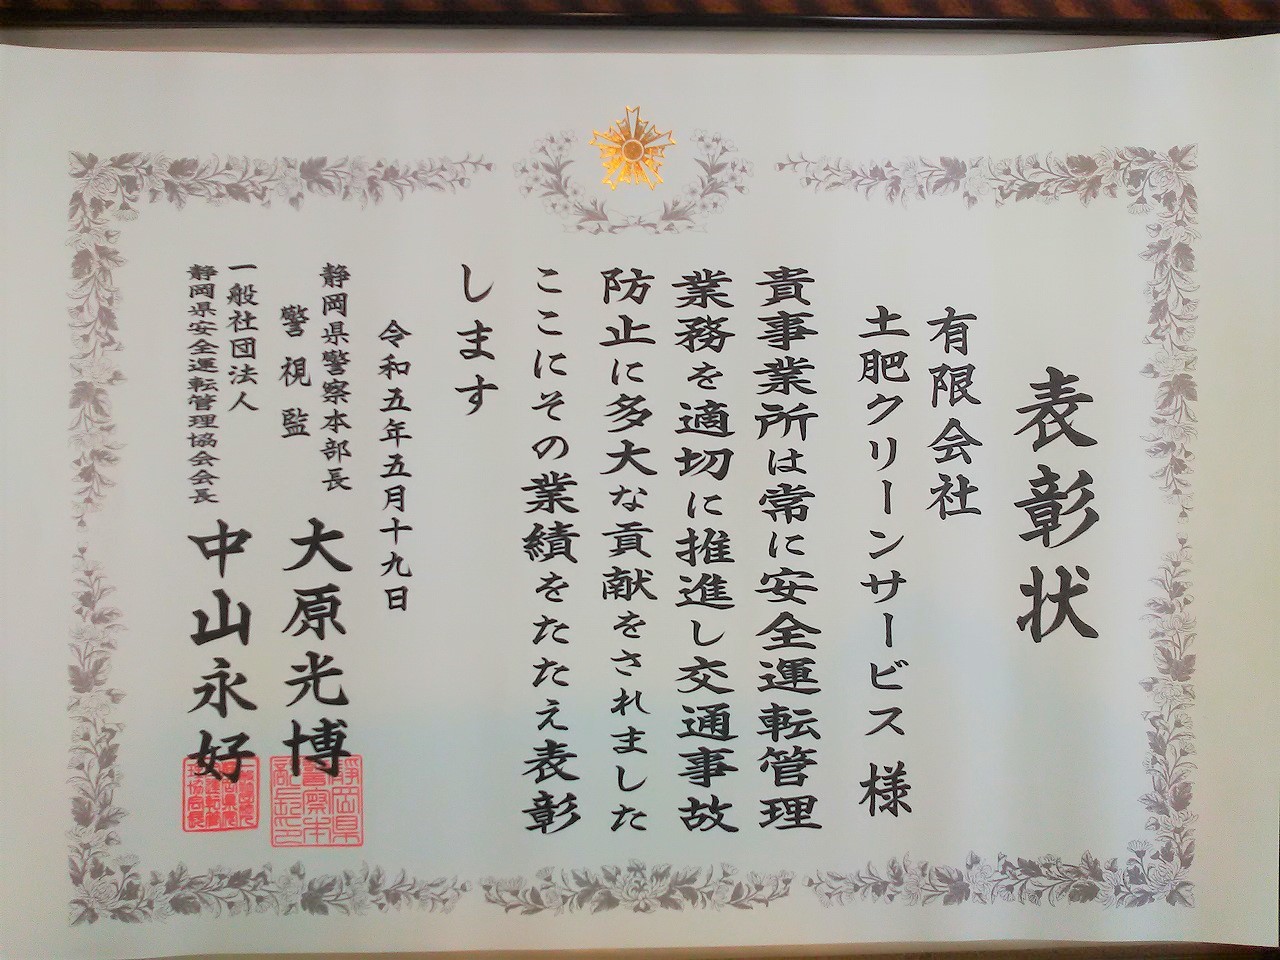 表彰状
有限会社
土肥クリーンサービス 様
貴事業所は常に安全運転管理
業務を適切に推進し交通事故
防止に多大な貢献をされました
ここにその業績をたたえ表彰
します
令和五年五月十九日
静岡県警察本部長
警視監 大原光博
一般社団法人
静岡県安全運転管理協会会長 中山永好